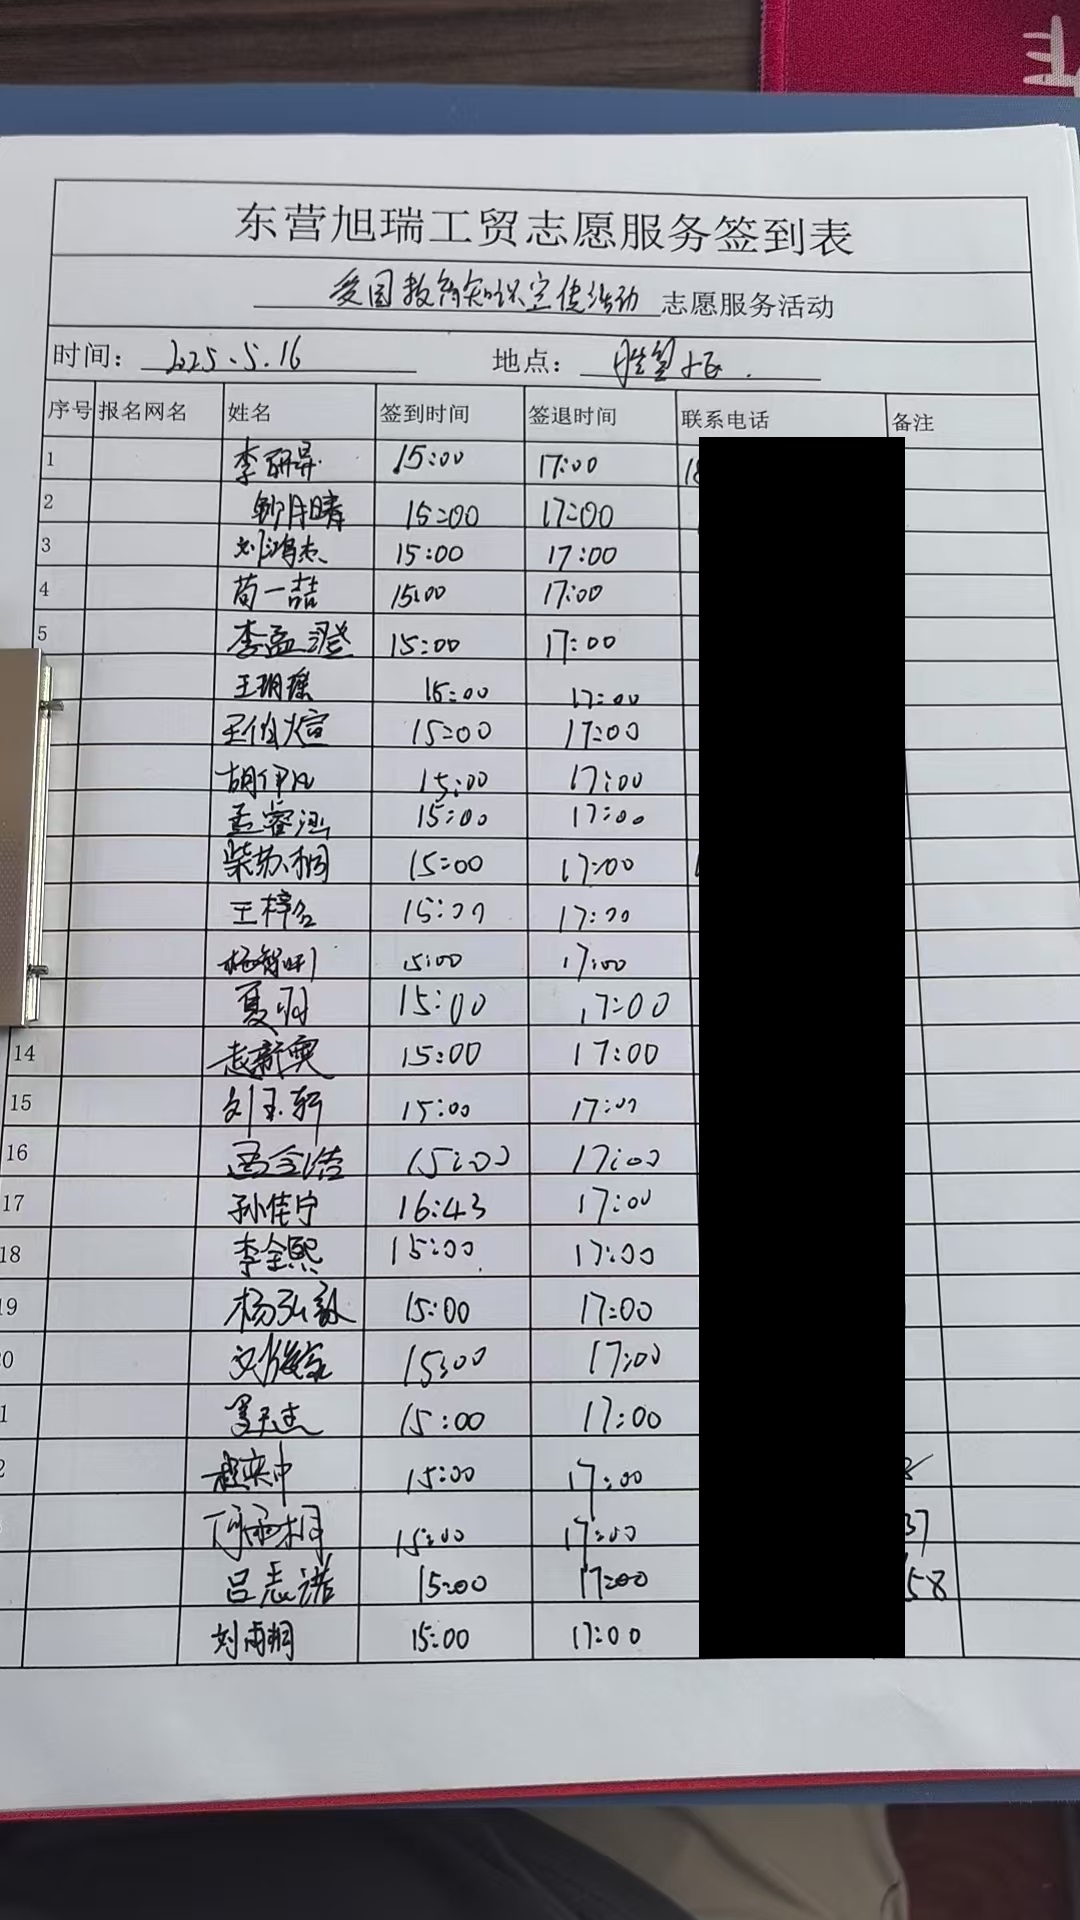 东营旭瑞工贸志愿服务签到表
爱国教育知识宣传活动 志愿服务活动
时间： 2025.5.16 地点：
序号 报名网名 姓名 签到时间 签退时间 联系电话 备注
1 李研昇 15:00 17:00 18
2 15:00 17:00
3 刘鸿杰 15:00 17:00
4 苟一喆 15:00 17:00
5 李孟澄 15:00 17:00
王玥瑶 15:00 17:00
王伯煊 15:00 17:00
胡伊凡 15:00 17:00
孟睿涵 15:00 17:00
柴苏桐 15:00 17:00
王梓名 15:00 17:00
杨智 15:00 17:00
夏羽 15:00 17:00
14 新奥 15:00 17:00
15 刘玉轩 15:00 17:00
16 15:00 17:00
17 孙佳宁 16:43 17:00
18 李全熙 15:00 17:00
19 杨弘毅 15:00 17:00
0 15:00 17:00
1 15:00 17:00
2 赵奕中 15:00 17:00
雨桐 15:00 17:00 37
吕志诺 15:00 17:00 58
刘雨桐 15:00 17:00